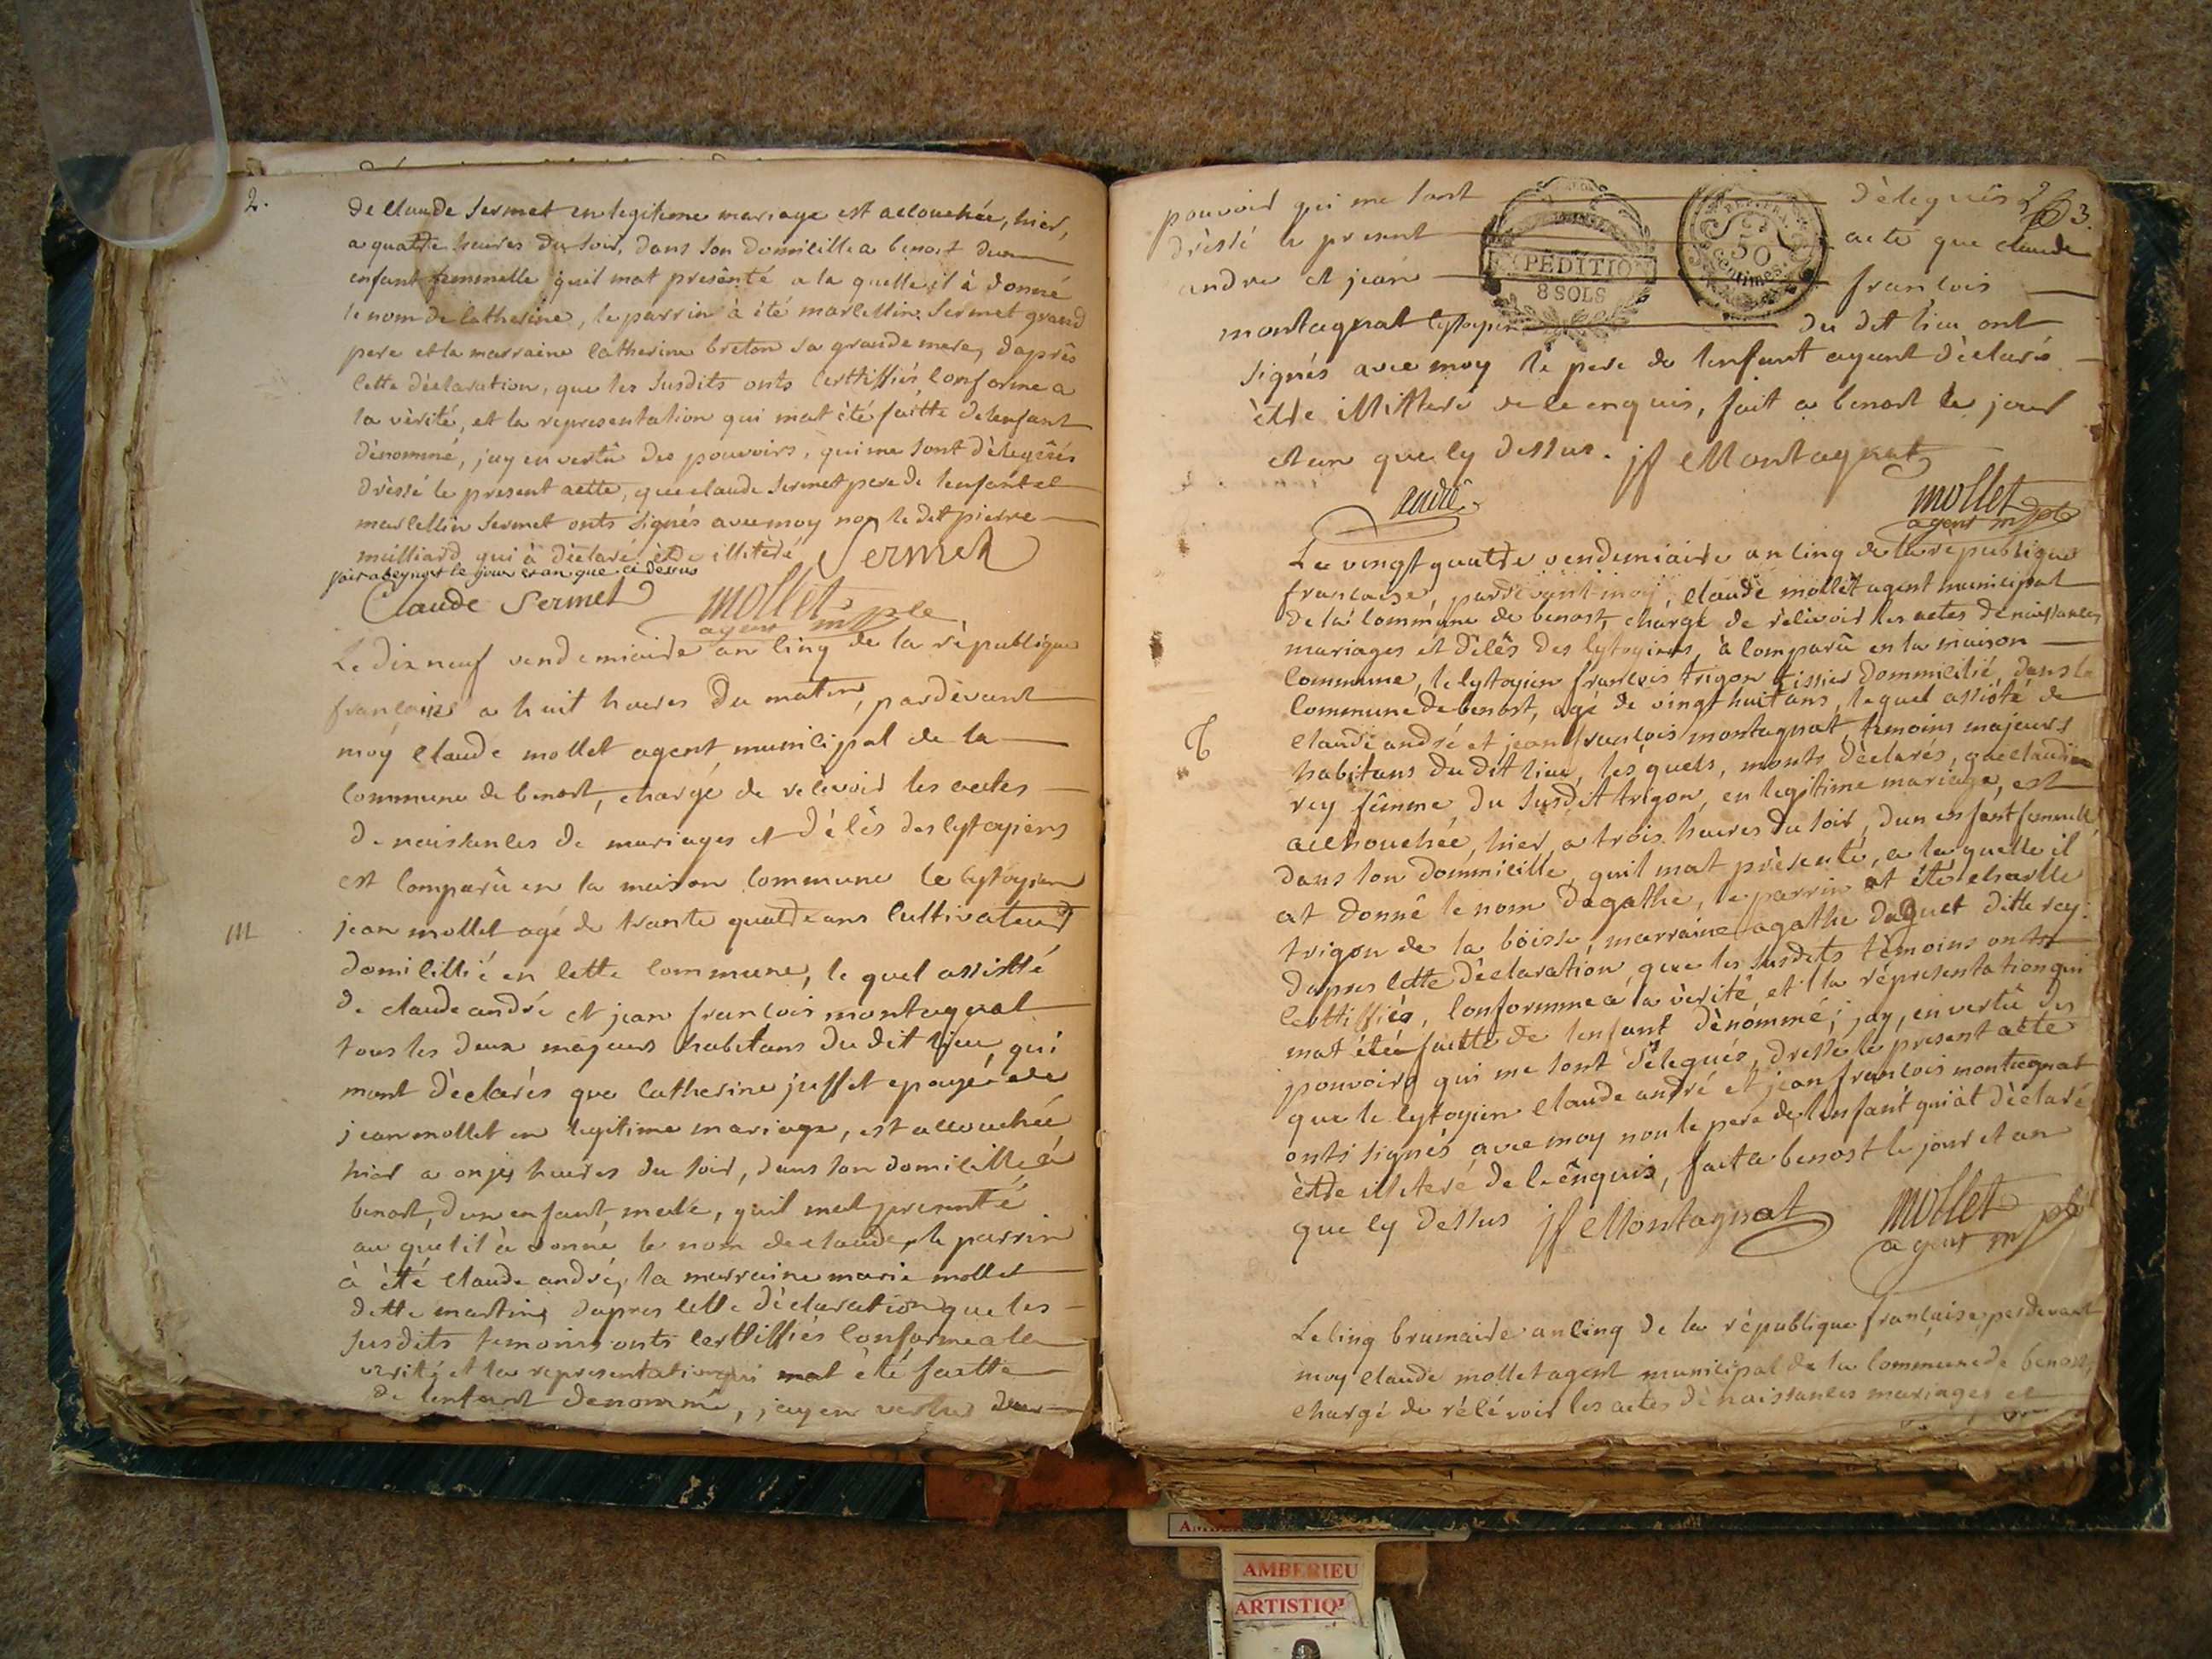 2.
de Claude Sermet en legitime mariage est accouchée, hier,
a quatre heures du soir, dans son domicille a benost dun
enfant femmelle quil mat presênté a la quelle il à donné
le nom de Catherine, le parrin à été marcellin Sermet grand
pere et la marraine Catherine breton sa grande mere, daprês
cette dèclaration, que les susdits onts certtiffiés conforme a
la vèrité, et la representation qui mat été faitte de lenfant
dènommé, jay en vertû des pouvoirs, qui me sont délegués
drèssé le present actte, que claude sermet pere de lenfant et
marcellin sermet onts signés avec moy non le dit pierre
milliard qui à dèclaré ètre illitèré Sermet
fait a beynost le jour et an que ci dessus
Claude Sermet mollet
agent mple
Le dix neuf vendemiaire an cinq de la rèpublique
francaise a huit heures du matin, pardèvant
moy Claude mollet agent municipal de la
Commune de benost, chargé de recevoir les actes
de naissances de mariages et dècês des cytoyiens
est comparû en la maison commune le cytoyien
jean mollet agé de trante quatre ans cultivateur
III
domicillié en cette commune, le quel assisté
de claude andré et jean francois montagnat
tous les deux majeurs habitans du dit lieu, qui
mont dèclarés que Catherine juffet epouse de
jean mollet en legitime mariage, est accouchée
hier a onze heures du soir, dans son domicille à
benost, dun enfant, male, quil mat presenté
au quel il à donné le nom de claude, le parrin
à été Claude andré, la marraine marie mollet
ditte martin, dapres cette dèclaration que les
susdits temoins onts certtiffiés conforme a la
verité et la representation qui mat été faitte
de lenfant denommé, jay en vertus des
pouvoir qui me sont dèlegués 3.
drèssé le present acte que claude
andre et jean francois
montagnat cytoyien du dit lieu ont
signés avec moy le pere de lenfant ayant dèclaré
ètre illitteré de ce enquis, fait a benost le jour
et an que cy dessus. jf Montagnat
EXPÉDITION
8 SOLS
50
Centimes
andré mollet
agent mple
Le vingt quatre vendemiaire an cinq de la rèpublique
francaise, pardevant moy, Claude mollet agent municipal
de la commune de benost, chargé de rècevoir les actes de naissances
mariages et dècês des cytoyiens, à comparû en la maison
commune, le cytoyien francois trigon tissier dommicilié, dans la
Commune de benost, agé de vingt huit ans, lequel assisté de
claude andré et jean francois montagnat, temoins majeurs
habitans du dit lieu, les quels, monts dèclarés, que claudine
rey fêmme, du susdit trigon, en legitime mariage, est
acchouchée, hier, a trois heures du soir, dun enfant femmelle
dans son dommicille, quil mat prèsenté, a la quelle il
at donnê le nom dagathe, le parrin at été charlle
trigon de la boisse, marraine agathe duguet ditte rey.
dapres cette dèclaration que les susdits tèmoins onts
certtiffiés, conformme à la vèrité, et la répresentation qui
mat étée faitte de lenfant dènommé; jay, en vertû des
pouvoirs qui me sont dèlegués, dressé le present actte
que le cytoyien Claude andré et jean francois montagnat
onts signés avec moy non le pere de lenfant qui at dèclaré
ètre illiteré de ce ênquis, fait a benost le jour et an
que cy dessus jf Montagnat mollet
agent mple
Le cinq brumaire an cinq de la république francaise pardevant
moy Claude mollet agent municipal de la Commune de benost,
chargé de rècévoir les actes dènaissances mariages et
AMBERIEU
ARTISTIQ